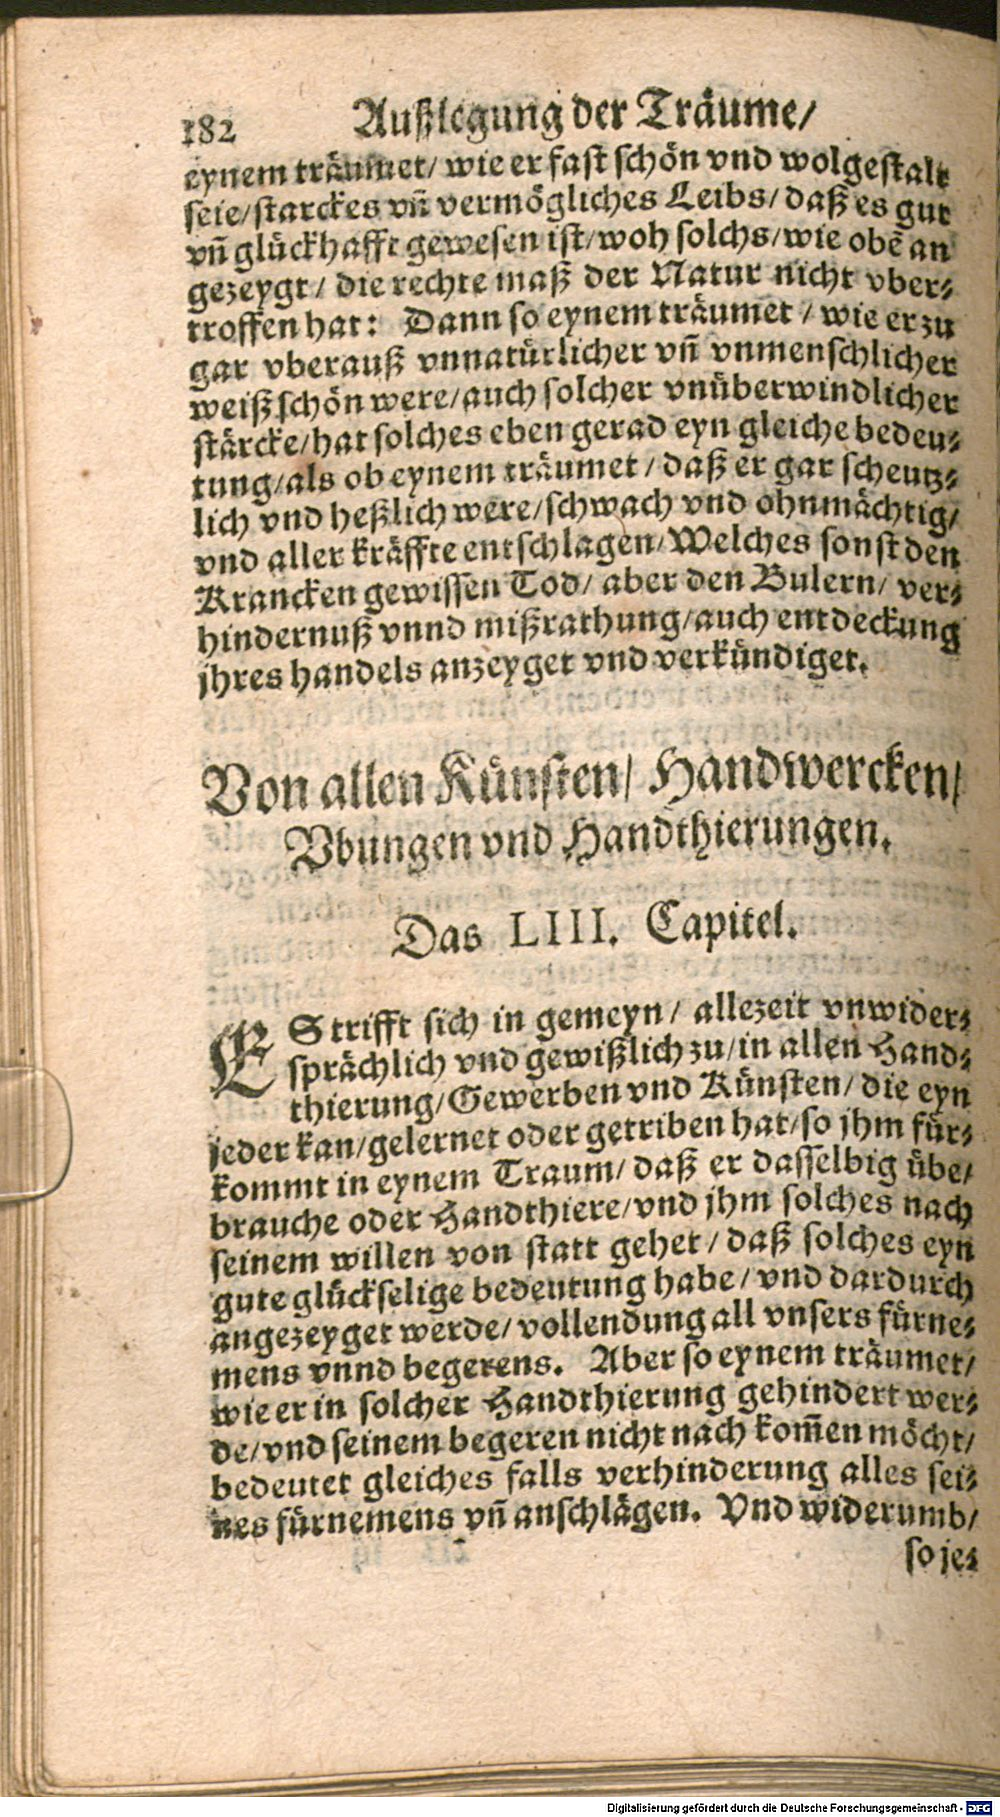 182 Außlegung der Träume/
eynem träumet/ wie er fast schön vnd wolgestalt
seie/ starckes vñ vermögliches Leibs/ daß es gut
vñ glückhafft gewesen ist/ woh solchs/ wie obẽ an
gezeygt/ die rechte maß der Natur nicht vber⸗
troffen hat: Dann so eynem träumet/ wie er zu
gar vberauß vnnatürlicher vñ vnmenschlicher
weiß schön were/ auch solcher vnüberwindlicher
stärcke/ hat solches eben gerad eyn gleiche bedeu⸗
tung/ als ob eynem träumet/ daß er gar scheutz⸗
lich vnd heßlich were/ schwach vnd ohnmächtig/
vnd aller kräffte entschlagen/ Welches sonst den
Krancken gewissen Tod/ aber den Bulern/ ver⸗
hindernuß vnnd mißrathung/ auch entdeckung
jhres handels anzeyget vnd verkündiget.
Von allen Künsten/ Handwercken/
Vbungen vnd Handthierungen.
Das LIII. Capitel.
ES trifft sich in gemeyn/ allezeit vnwider⸗
sprächlich vnd gewißlich zu/ in allen Hand⸗
thierung/ Gewerben vnd Künsten/ die eyn
jeder kan/ gelernet oder getriben hat/ so jhm für⸗
kommt in eynem Traum/ daß er dasselbig übe/
brauche oder Handthiere/ vnd jhm solches nach
seinem willen von statt gehet/ daß solches eyn
gute glückselige bedeutung habe/ vnd dardurch
angezeyget werde/ vollendung all vnsers fürne⸗
mens vnnd begerens. Aber so eynem träumet/
wie er in solcher Handthierung gehindert wer⸗
de/ vnd seinem begeren nicht nach kom̃en möcht/
bedeutet gleiches falls verhinderung alles sei⸗
nes fürnemens vñ anschlägen. Vnd widerumb/
so je⸗
Digitalisierung gefördert durch die Deutsche Forschungsgemeinschaft - DFG